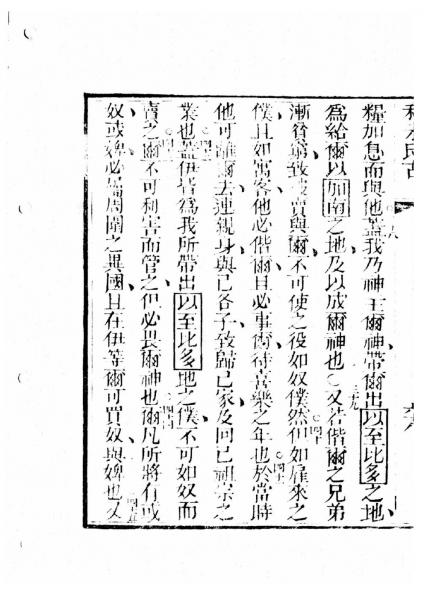 糧加息而與他蓋我乃神主爾神帶爾出以至比多之地
為給爾以加南之地及以成爾神也○又若偕爾之兄弟
漸貧窮致賣與爾不可使之役如奴僕然但如雇來之
僕且如寓客他必偕爾且必事爾待喜樂之年也於當時
他可離爾去連親身與己各子致歸己家及回己祖宗之
業也蓋伊皆為我所帶出以至比多地之僕不可如奴而
賣之爾不可利害而管之但必畏爾神也爾凡所將有或
奴或婢必屬周圍之異國且在伊等爾可買奴與婢也又